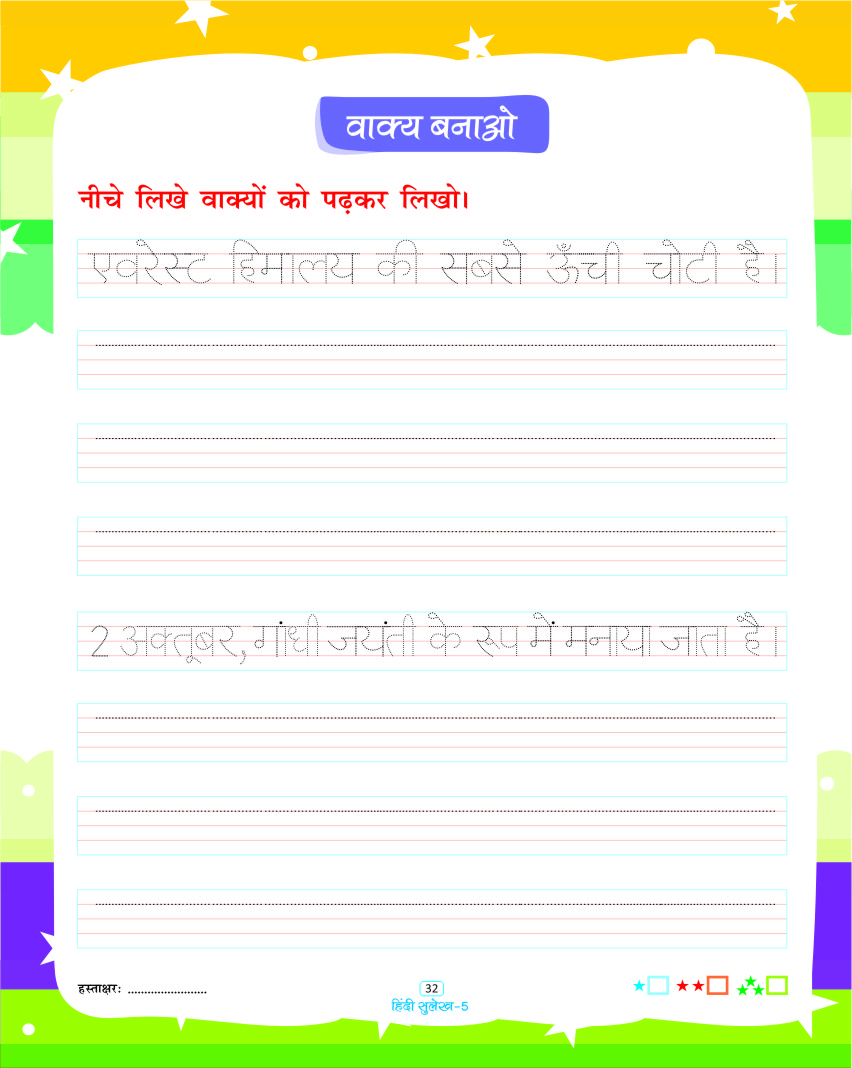 वाक्य बनाओ
नीचे लिखे वाक्यों को पढ़कर लिखो।
एवरेस्ट हिमालय की सबसे ऊँची चोटी है।
2 अक्तूबर, गांधी जयंती के रूप में मनाया जाता है।
हस्ताक्षर: ........................
32
हिंदी सुलेख-5